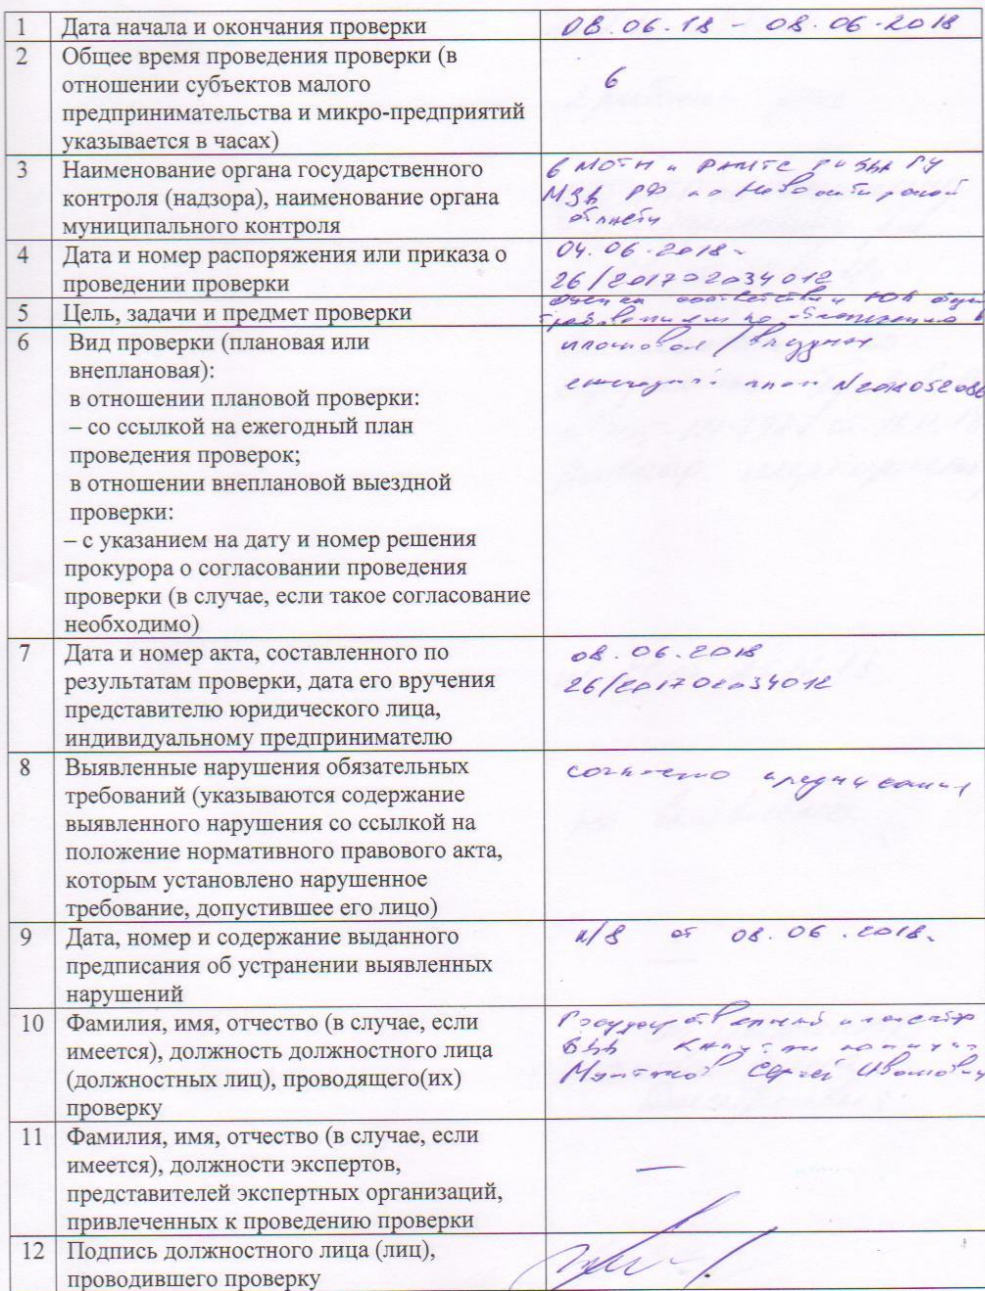 1 Дата начала и окончания проверки 08.06.18 - 08.06.2018
2 Общее время проведения проверки (в
отношении субъектов малого
6
предпринимательства и микро-предприятий
указывается в часах)
3 Наименование органа государственного
контроля (надзора), наименование органа
муниципального контроля
6 МОТН и РАМТС ГИБДД ГУ
МВД РФ по Новосибирской
области
4 Дата и номер распоряжения или приказа о
проведении проверки
04.06.2018-
26/201702034012
5 Цель, задачи и предмет проверки
оценка соответствия ЮЛ
требованиям по
6 Вид проверки (плановая или
внеплановая):
в отношении плановой проверки:
– со ссылкой на ежегодный план
проведения проверок;
в отношении внеплановой выездной
проверки:
– с указанием на дату и номер решения
прокурора о согласовании проведения
проверки (в случае, если такое согласование
необходимо)
плановая / выездная
ежегодный план
7 Дата и номер акта, составленного по
результатам проверки, дата его вручения
представителю юридического лица,
индивидуальному предпринимателю
08.06.2018
26/201702034012
8 Выявленные нарушения обязательных
требований (указываются содержание
выявленного нарушения со ссылкой на
положение нормативного правового акта,
которым установлено нарушенное
требование, допустившее его лицо)
согласно предписания
9 Дата, номер и содержание выданного
предписания об устранении выявленных
нарушений
от 08.06.2018.
10 Фамилия, имя, отчество (в случае, если
имеется), должность должностного лица
(должностных лиц), проводящего(их)
проверку
Государственный инспектор
БДД капитан полиции
Сергей Иванович
11 Фамилия, имя, отчество (в случае, если
имеется), должности экспертов,
представителей экспертных организаций,
привлеченных к проведению проверки
—
12 Подпись должностного лица (лиц),
проводившего проверку